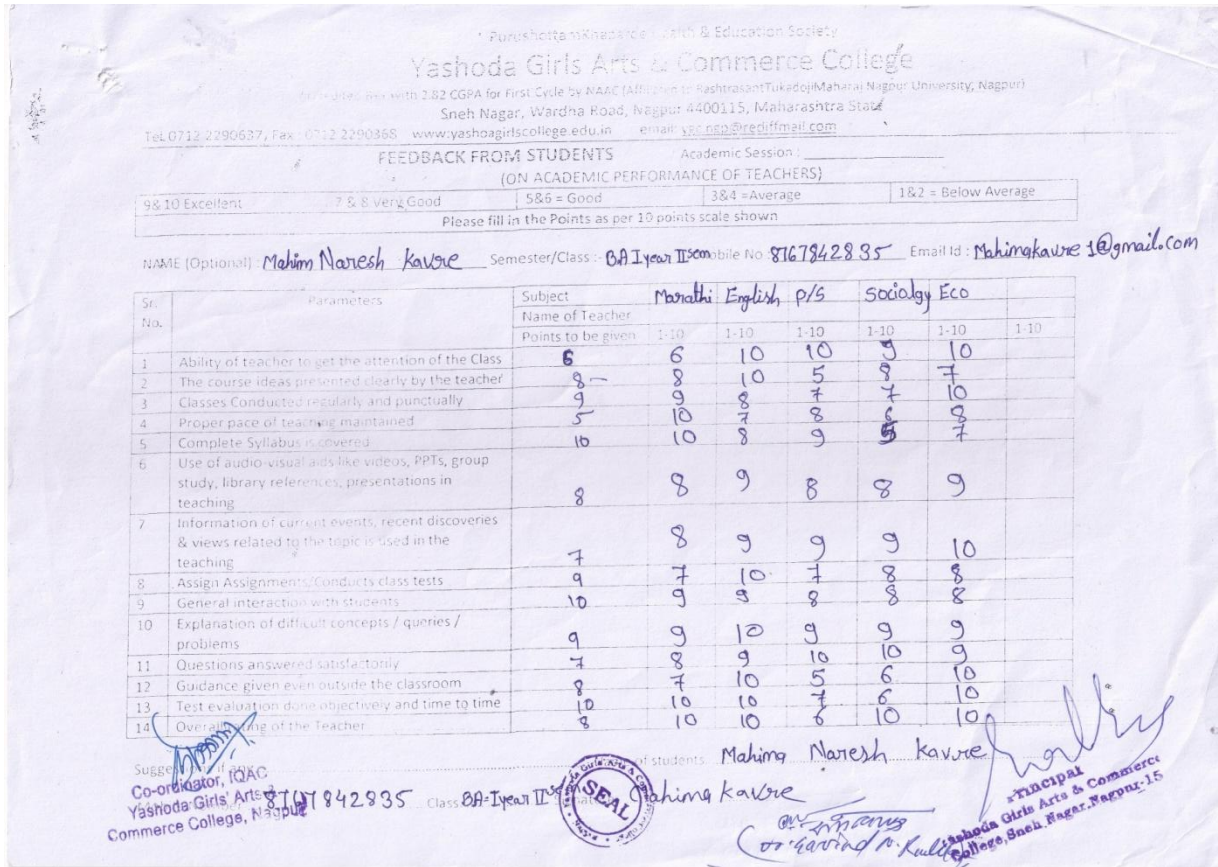 Purushottam Khaparde Health & Education Society
Yashoda Girls Arts & Commerce College
with 2.82 CGPA for First Cycle by NAAC (Affiliated to RashtrasantTukadojiMaharaj Nagpur University, Nagpur)
Sneh Nagar, Wardha Road, Nagpur 4400115, Maharashtra State
Tel.0712 2290637, Fax : 0712 2290368 www.yashoagirlscollege.edu.in email: ygc.ngp@rediffmail.com
FEEDBACK FROM STUDENTS Academic Session :
(ON ACADEMIC PERFORMANCE OF TEACHERS)
9& 10 Excellent 7 & 8 Very Good 5&6 = Good 3&4 =Average 1&2 = Below Average
Please fill in the Points as per 10 points scale shown
NAME (Optional) : Mahim Naresh Kavre Semester/Class :- BA I year II Sem obile No : 8767842835 Email Id : Mahimakavre 1@gmail.com
Sr. No. Parameters Subject Marathi English P/S Socialgy Eco
Name of Teacher
Points to be given 1-10 1-10 1-10 1-10 1-10 1-10
1 Ability of teacher to get the attention of the Class 6 6 10 10 9 10
2 The course ideas presented clearly by the teacher 8 - 8 10 5 8 7
3 Classes Conducted regularly and punctually 9 9 8 7 7 10
4 Proper pace of teaching maintained 5 10 7 8 6 8
5 Complete Syllabus is covered 10 10 8 9 5 7
6 Use of audio-visual aids like videos, PPTs, group
study, library references, presentations in
teaching 8 8 9 8 8 9
7 Information of current events, recent discoveries
& views related to the topic is used in the
teaching 7 8 9 9 9 10
8 Assign Assignments/Conducts class tests 9 7 10 7 8 8
9 General interaction with students 10 9 9 8 8 8
10 Explanation of difficult concepts / queries /
problems 9 9 10 9 9 9
11 Questions answered satisfactorily 7 8 9 10 10 9
12 Guidance given even outside the classroom 8 7 10 5 6 10
13 Test evaluation done objectively and time to time 10 10 10 7 6 10
14 Overall rating of the Teacher 8 10 10 6 10 10
of students Mahima Naresh Kavre
8767842835 Class BA-I year II Mahima Kavre
Co-ordinator, IQAC
Yashoda Girls' Arts &
Commerce College, Nagpur
Yashoda Girls Arts & Co
SEAL
Principal
Yashoda Girls Arts & Commerce
College, Sneh Nagar, Nagpur-15